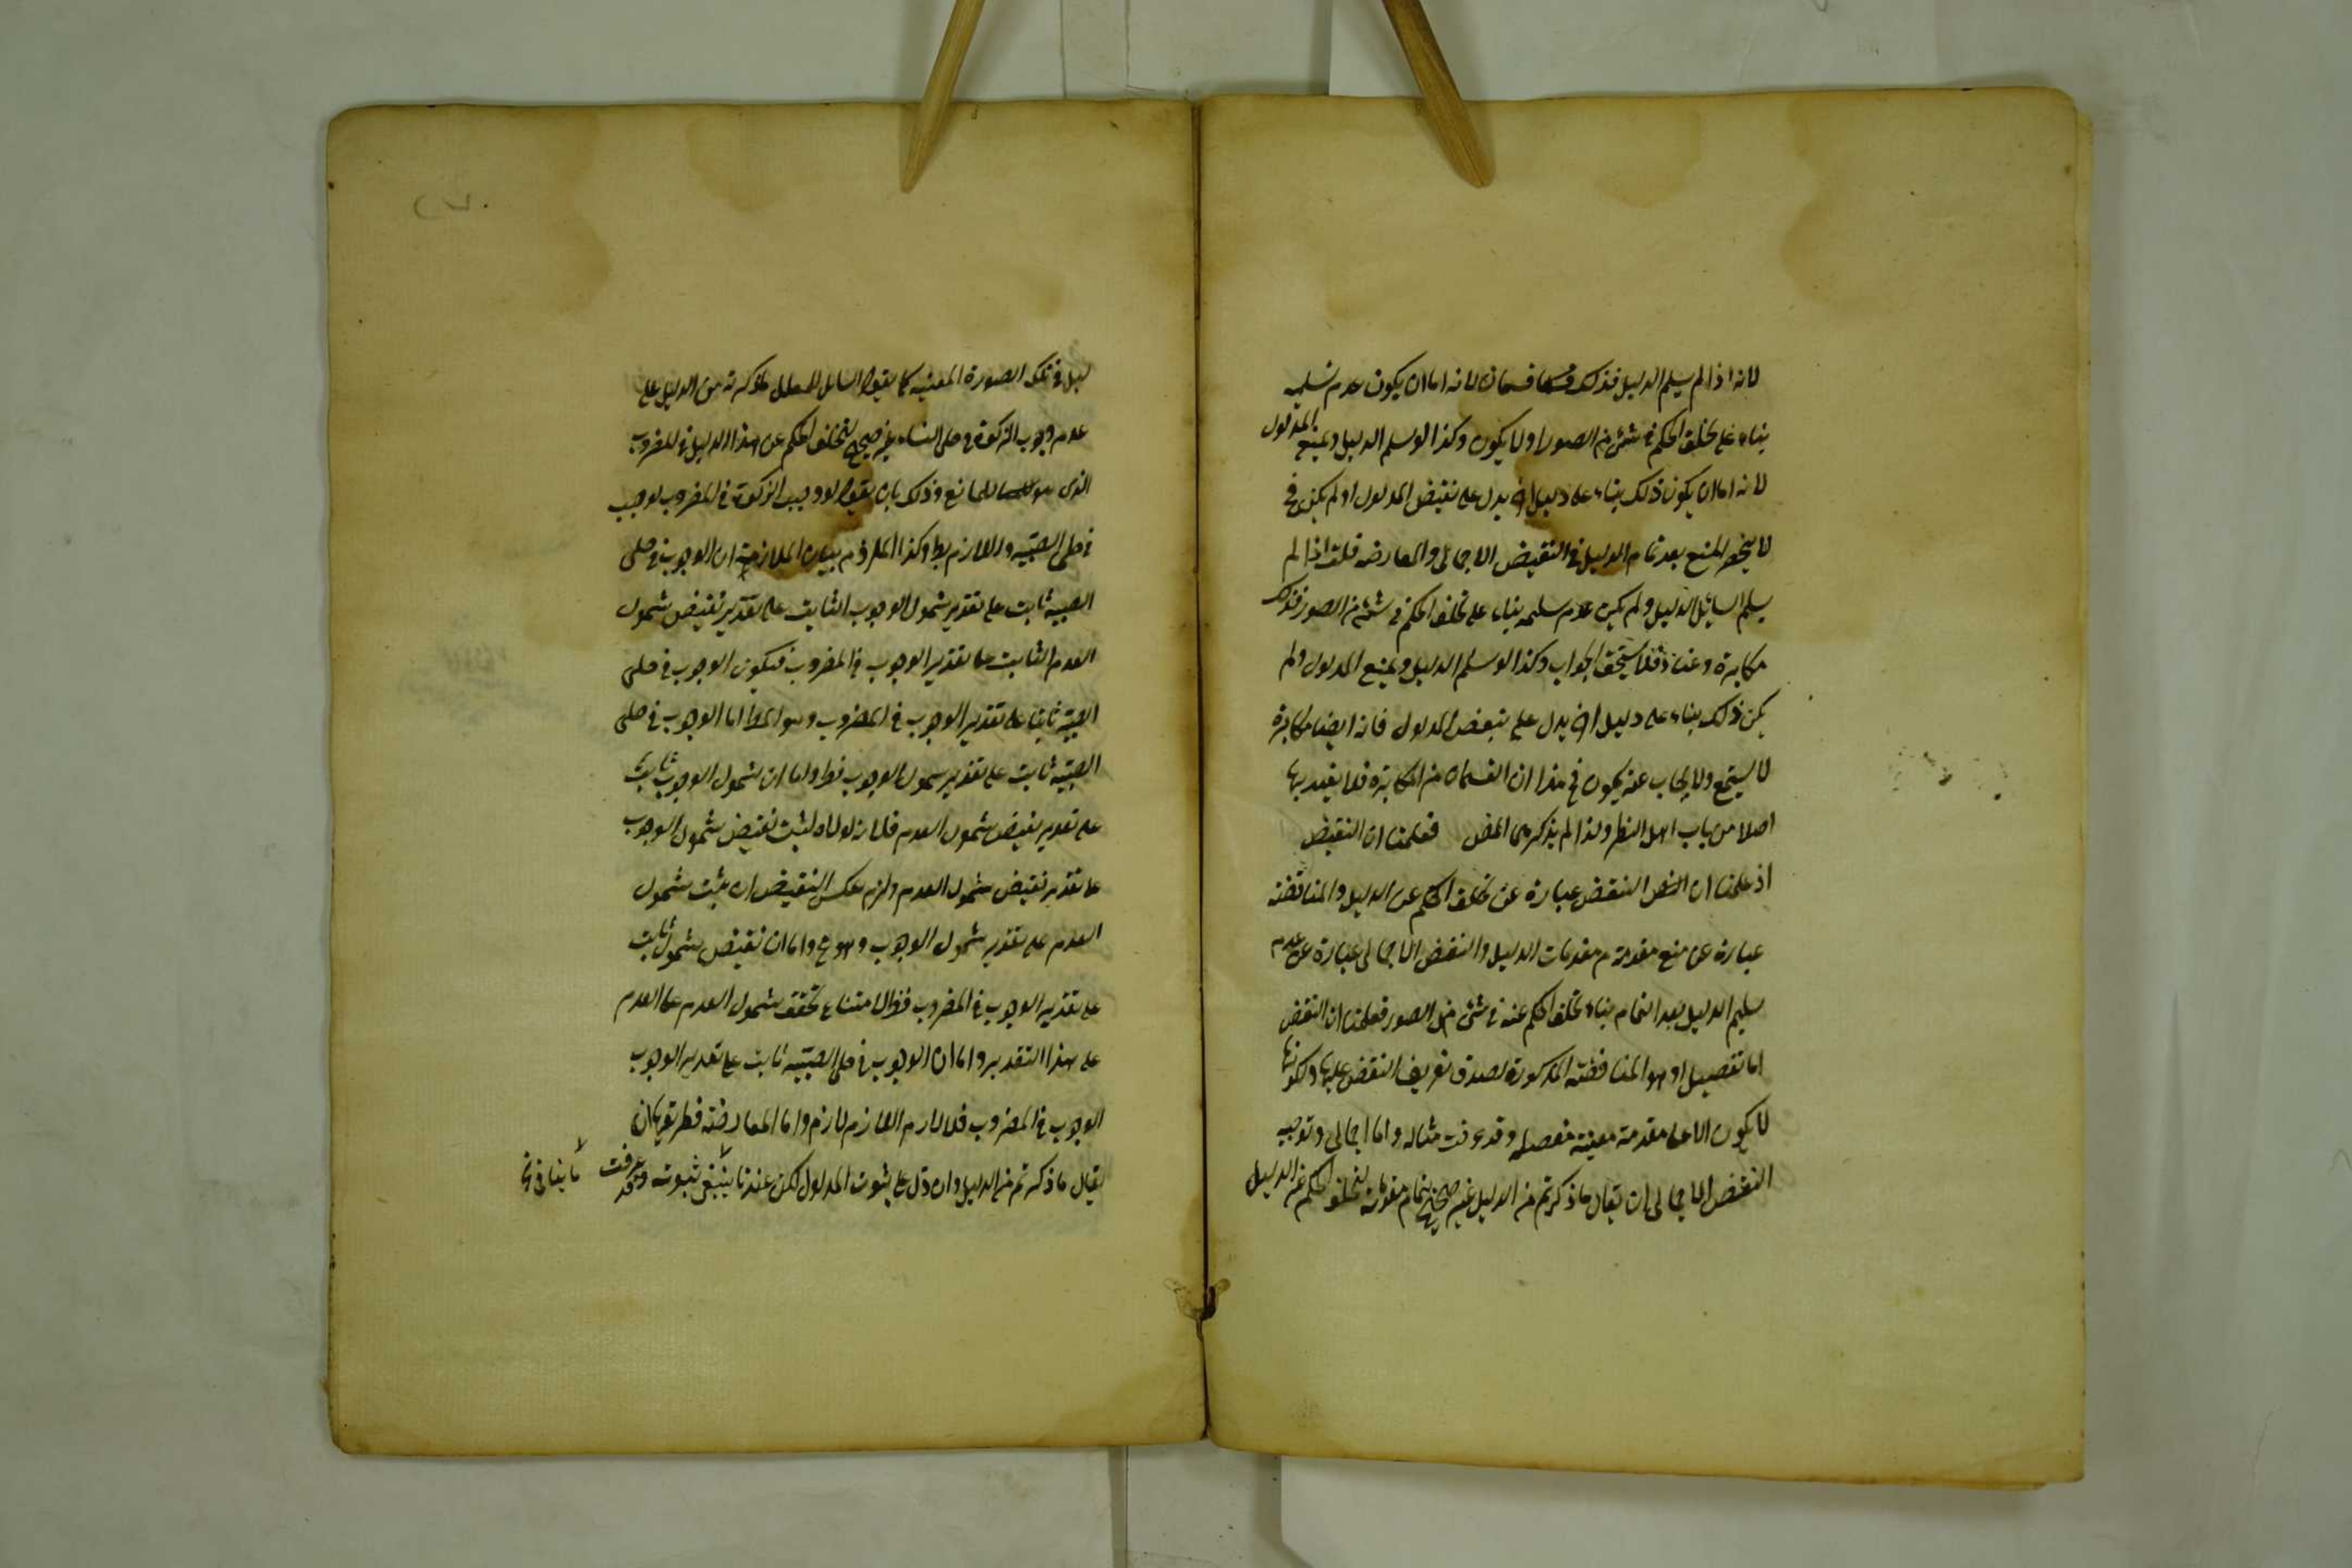 لانه اذا لم يسلم الدليل فذلك قسمان لانه اما ان يكون عدم تسليمه
بناء على تخلف الحكم في شئ من الصور او لا يكون وكذا لو سلم الدليل ويمنع المدلول
لانه اما ان يكون ذلك بناء على دليل اخر يدل على نقيض المدلول او لم يكن فح
لا ينحصر المنع بعد تمام الدليل في النقيض الاجمالى والمعارضه قلت اذا لم
يسلم السائل الدليل ولم يكن عدم سليمه بناء على تخلف الحكم في شئ من الصور فذلك
مكابرة وعناد فلا يستحق الجواب وكذا لو سلم الدليل ويمنع المدلول ولم
يكن ذلك بناء على دليل اخر يدل على نقيض المدلول فانه ايضا مكابرة
لا يستمع ولا يجاب عنه يكون في هذا ان القسمان من المكابرة فلا يعتد بها
اصلا من باب اهل النظر ولذا لم يذكرهما المص فعلمنا ان النقيض
اذ علمنا ان النقض عبارة عن تخلف الحكم عن الدليل والمناقضة
عبارة عن منع مقدمة من مقدمات الدليل والنقض الاجمالى عبارة عن عدم
سليم الدليل بعد التمام بناء تخلف الحكم عنه في شئ من الصور فعلمنا ان النقض
اما تفصيل او هو المناقضة المذكورة لصدق تعريف النقض عليها ولكونها
لا يكون الا على مقدمة معينة مفصله وقد عرفت مثاله واما اجمالى وتوجيه
النقض الاجمالى ان يقال ما ذكرتم من الدليل غير صحيح بتمام مقدماته لتخلف الحكم عن الدليل
ليل في تلك الصورة المعينه كما يقول السائل للمعلل ما ذكرته من الدليل على
عدم وجوب الزكوة في حلى النساء غير صحيح لتخلف الحكم عن هذا الدليل في المضروب
الذى هو للمانع وذلك بان يقول لو وجبت الزكوة في المضروب لوجبت
في حلى الصبيه واللازم بط وكذا الملزوم بيان الملازمة ان الوجوب في حلى
الصبيه ثابت على تقدير شمول الوجوب الثابت على تقدير نقيض شمول
العدم الثابت على تقدير الوجوب في المضروب فيكون الوجوب في حلى
الصبيه ثابتا على تقدير الوجوب في المضروب وهو المط اما الوجوب في حلى
الصبيه ثابت على تقدير شمول الوجوب فظ واما ان شمول الوجوب ثابت
على تقدير نقيض شمول العدم فلانه لولاه لثبت نقيض شمول الوجوب
على تقدير نقيض شمول العدم ولزم عكس النقيض ان يثبت شمول
العدم على تقدير شمول الوجوب وهو مح واما ان نقيض شمول ثابت
على تقدير الوجوب في المضروب فظ لامتناع تحقق شمول العدم على العدم
على هذا التقدير واما ان الوجوب في حلى الصبيه ثابت على تقدير الوجوب
الوجوب في المضروب فلان لازم اللازم لازم واما المعارضة فطريقها ان
يقال ما ذكرتم من الدليل وان دل على ثبوت المدلول لكن عندنا ثبوته وقد عرفت